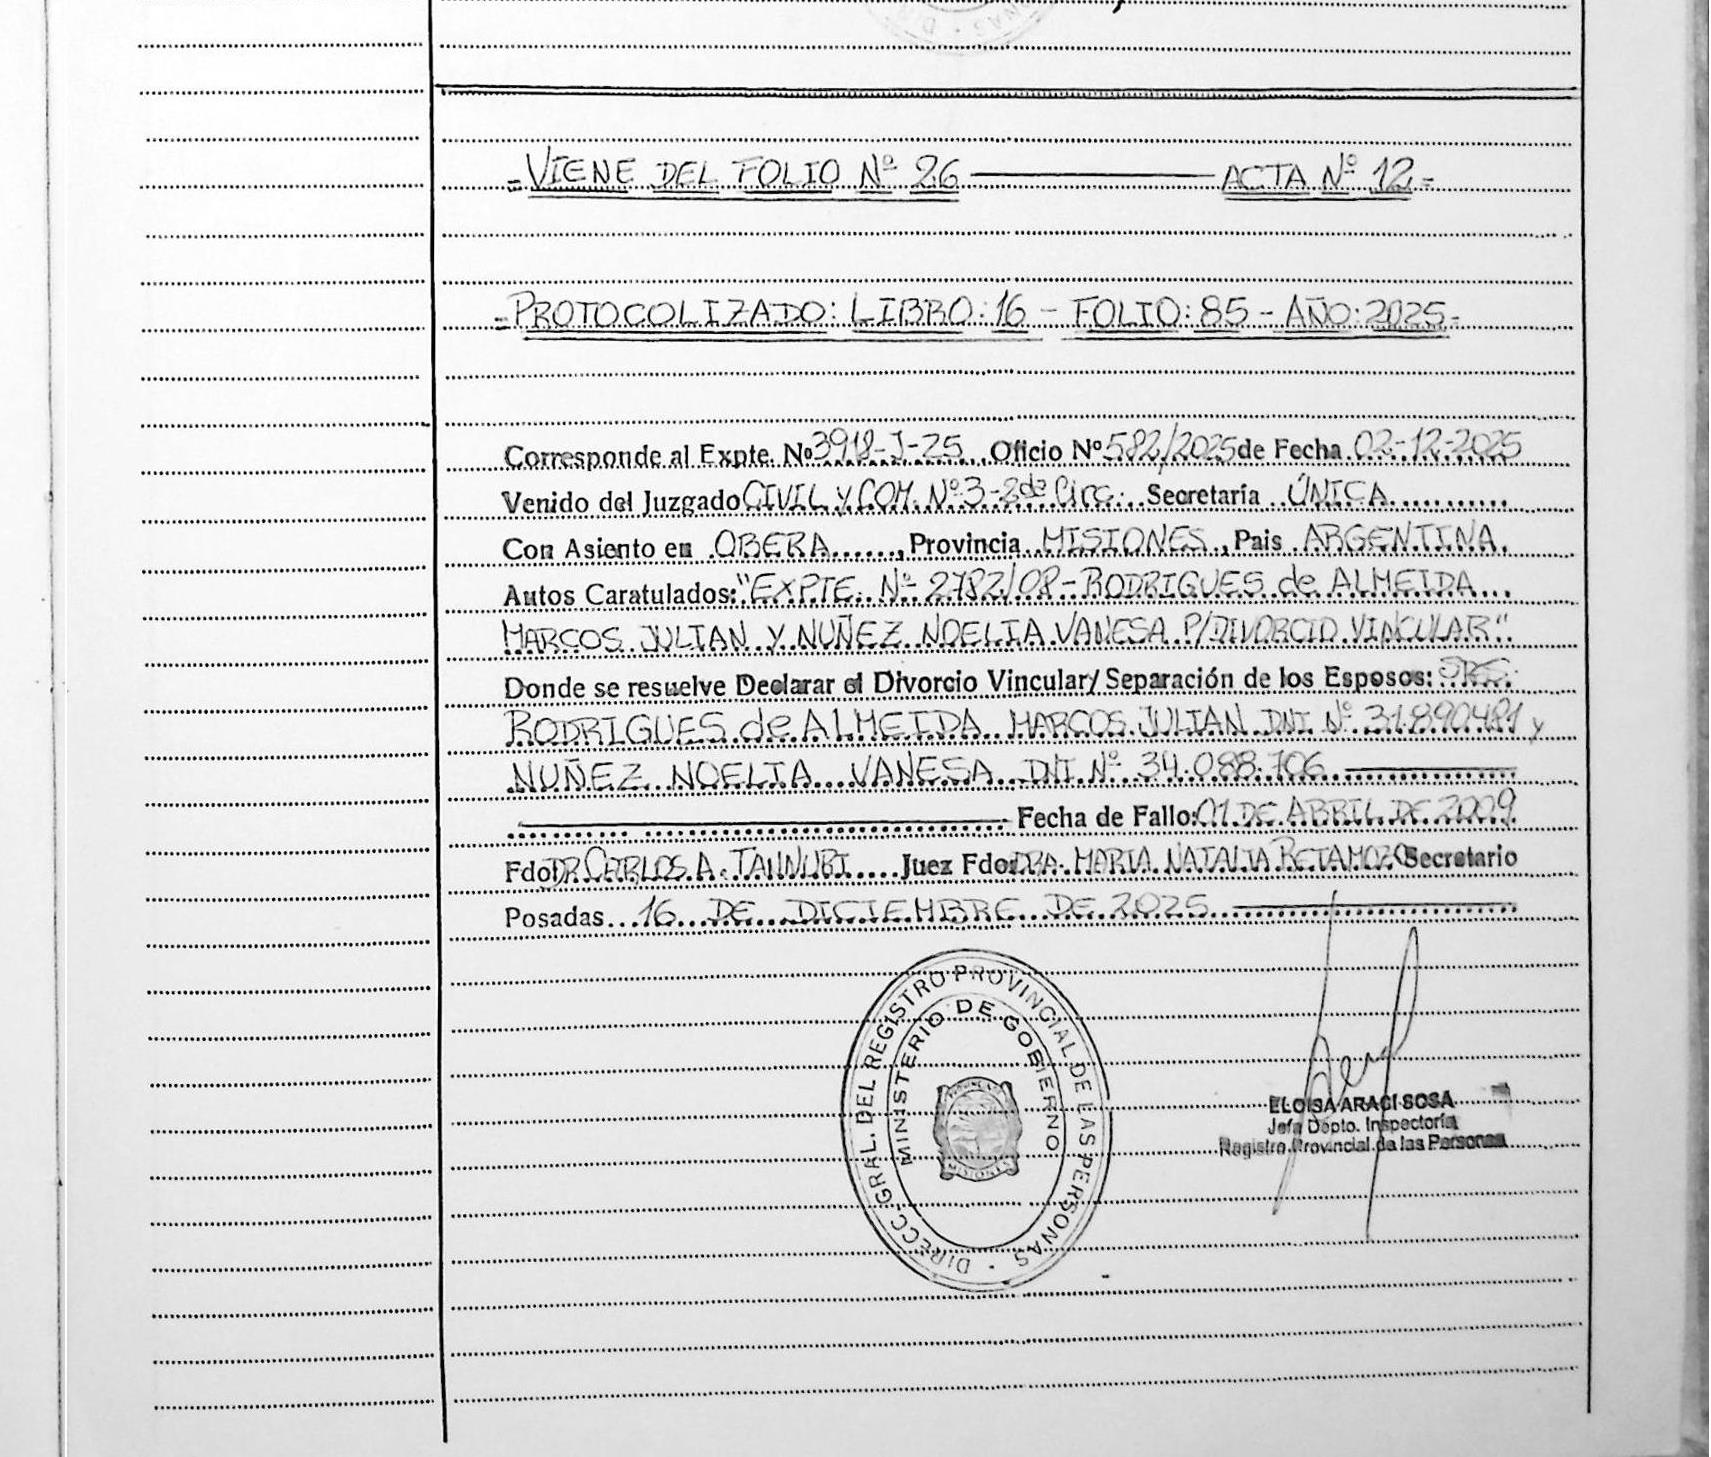 =VIENE DEL FOLIO Nº 26 ——— ACTA Nº 12=
=PROTOCOLIZADO: LIBRO: 16 - FOLIO: 85 - AÑO: 2025=
Corresponde al Expte. Nº 3918-J-25 Oficio Nº 582/2025 de Fecha 02-12-2025
Venido del Juzgado CIVIL Y COM. Nº 3-2da Circ. Secretaría ÚNICA
Con Asiento en OBERA, Provincia MISIONES, Pais ARGENTINA.
Autos Caratulados: "EXPTE. Nº 2782/08-RODRIGUES de ALMEIDA
MARCOS JULIAN Y NUÑEZ NOELIA VANESA P/DIVORCIO VINCULAR"
Donde se resuelve Declarar el Divorcio Vincular/ Separación de los Esposos: SRES.
RODRIGUES de ALMEIDA MARCOS JULIAN DNI Nº 31.890.481 y
NUÑEZ NOELIA VANESA DNI Nº 34.088.706
Fecha de Fallo: 01 DE ABRIL DE 2009
Fdo: DR CARLOS A. Juez Fdo: DRA. MARIA NATALIA RETAMOZO Secretario
Posadas 16 DE DICIEMBRE DE 2025
DIRECC. GRAL. DEL REGISTRO PROVINCIAL DE LAS PERSONAS
MINISTERIO DE GOBIERNO
MISIONES
ELOISA ARACI SOSA
Jefa Dpto. Inspectoría
Registro Provincial de las Personas